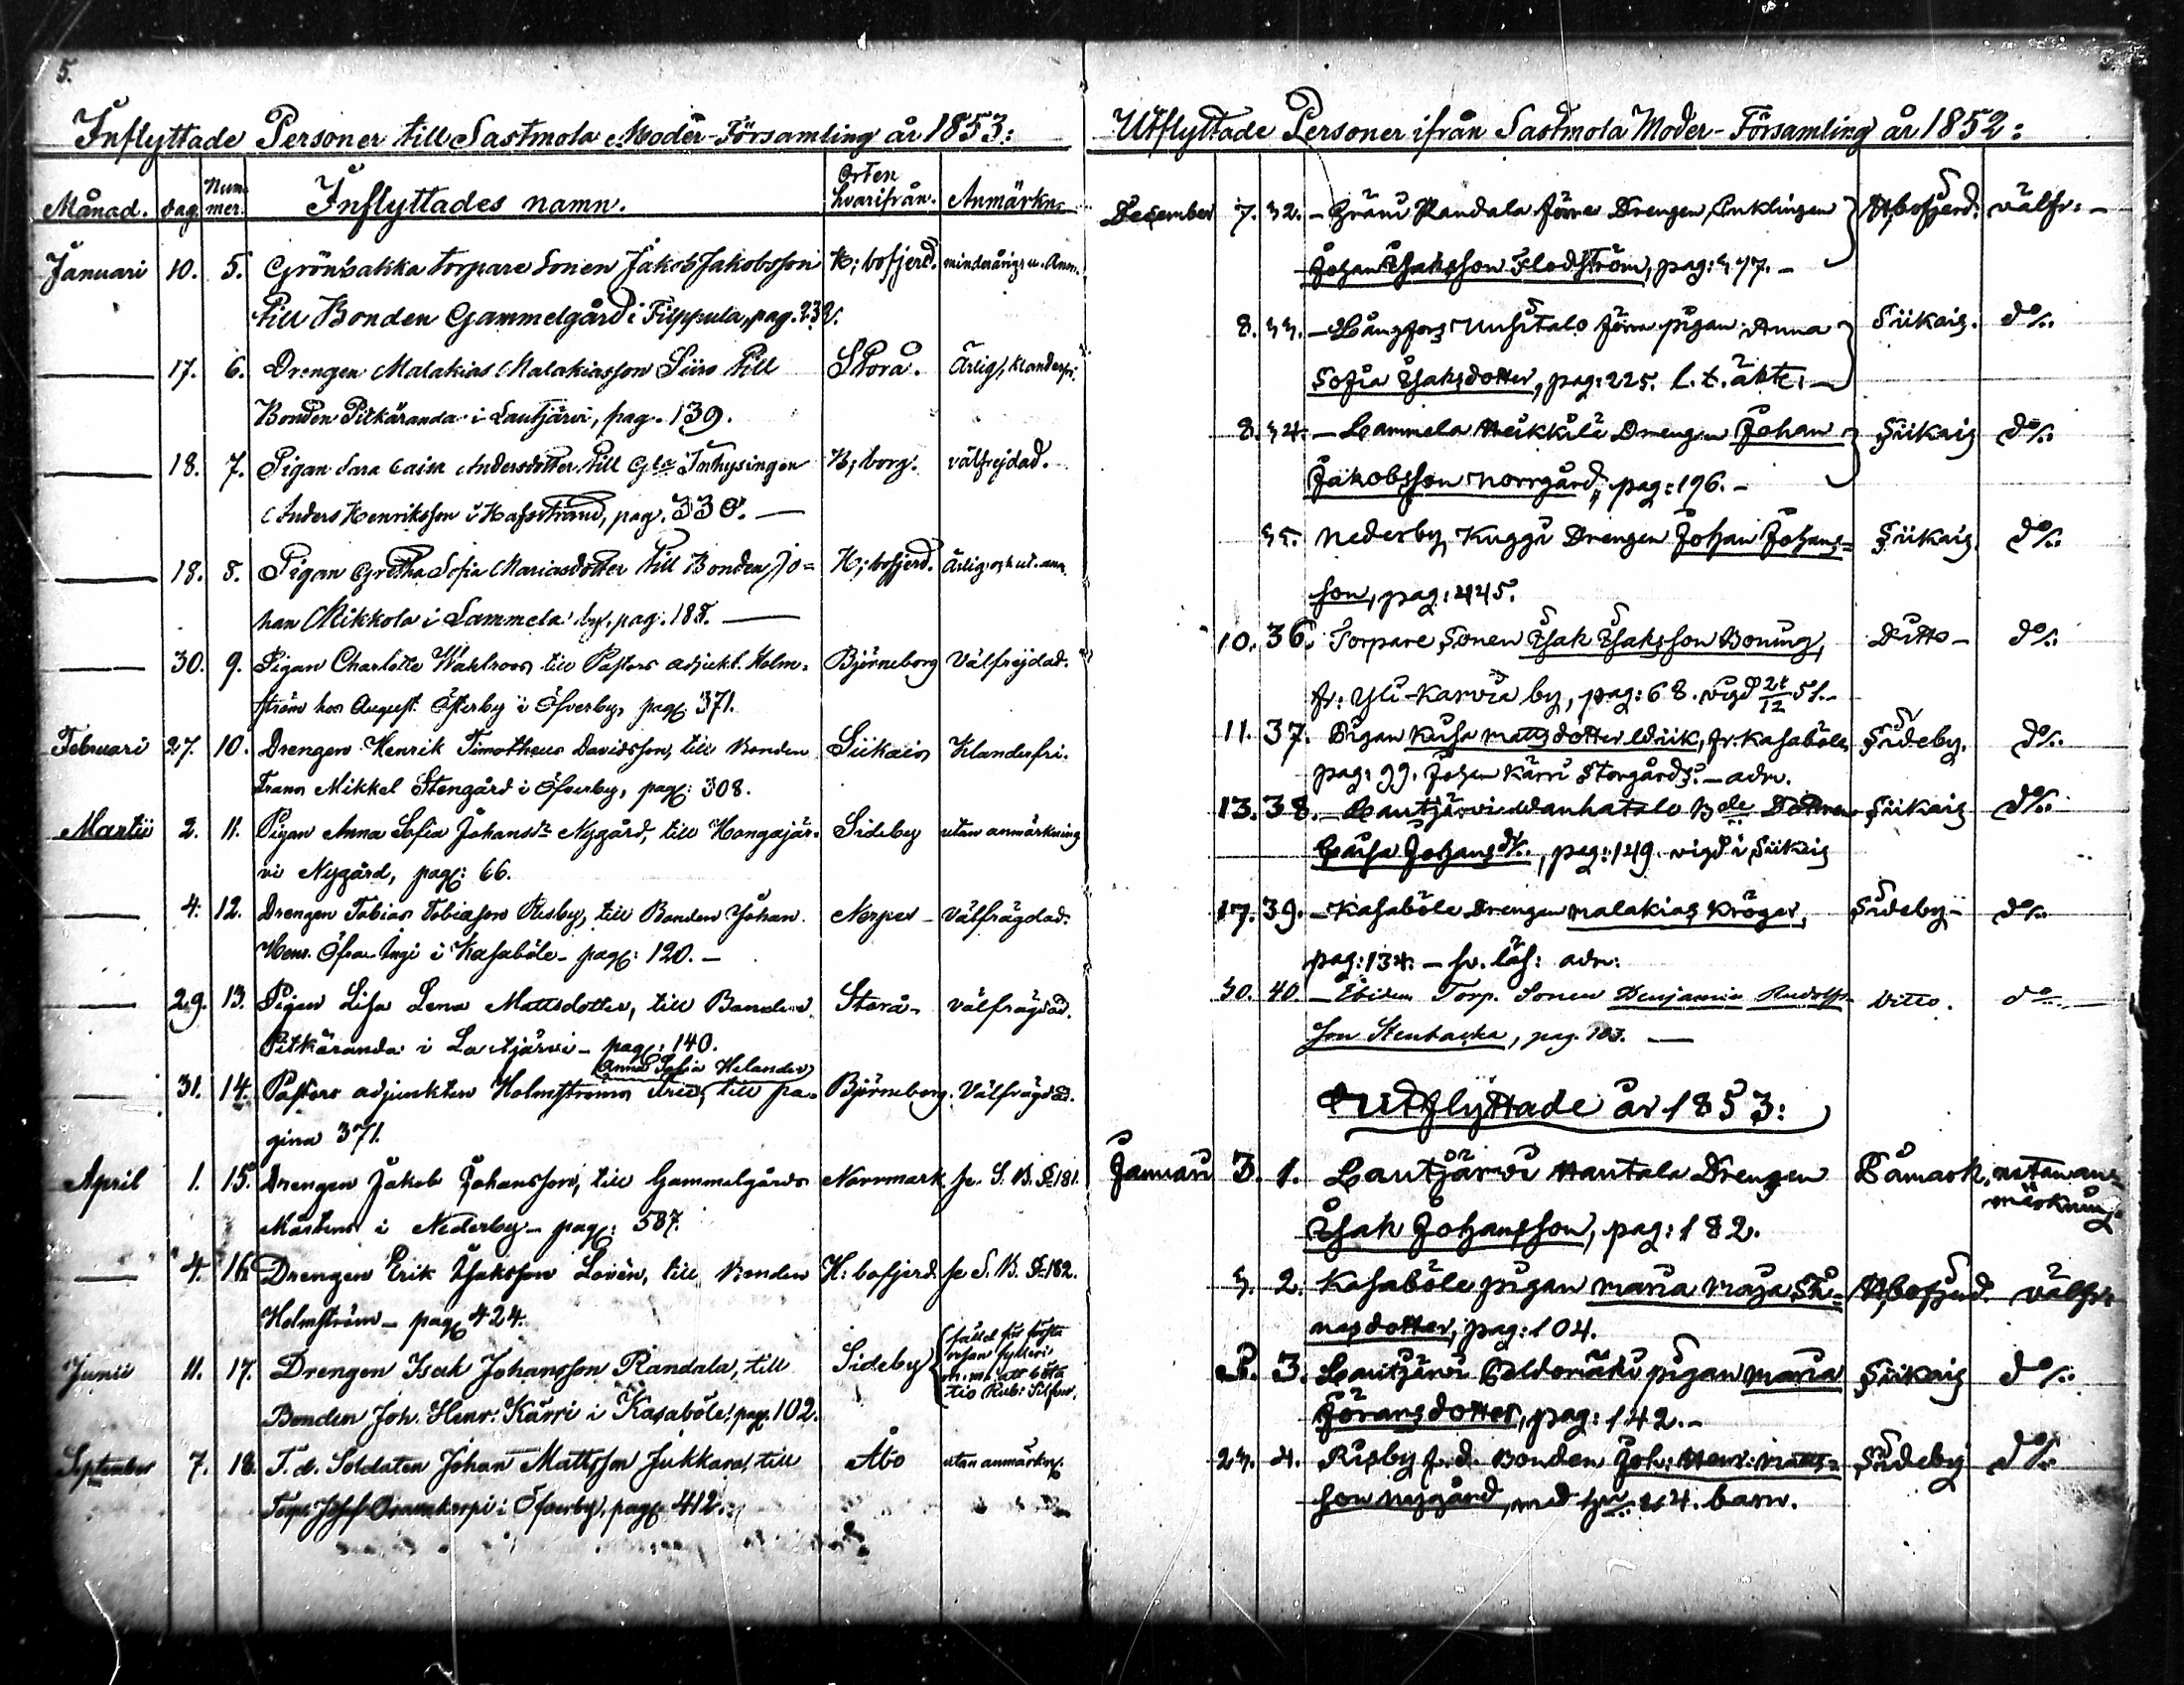 5.
Inflyttade Personer till Sastmola Moder-Församling år 1853:
Månad. dag. Num-mer. Inflyttades namn. Orten hvarifrån. Anmärkn.
Januari 10. 5. Grönbakka torpare Sonen Jakob Jakobsson H;bofjerd. minderårig u. Anm.
till Bonden Gammelgård i Filppula, pag. 232.
17. 6. Drengen Malakias Malakiasson Siiro till Storå. Ärlig,
Bonden Pitkäranda i Lautjärvi, pag. 139.
18. 7. Pigan Sara Caisa Andersdotter till Gla Inhysingen H;borg. välfrejdad.
Anders Henriksson i Hafsstrand, pag. 330.
18. 8. Pigan Gretha Sofia Mariasdotter till Bonden Jo= H;bofjerd. Ärlig och ut. anm.
han Mikkola i Lammela by. pag. 188.
30. 9. Pigan Charlotte Wahlroos till Pastors adjunkt. Holm= Björneborg Välfrejdad.
ström hos August Österby i Öfverby, pag: 371.
Februari 27. 10. Drengen Henrik Timotheus Davidsson, till Bonden Siikais Klanderfri.
Frans Mikkel Stengård i Öfverby, pag: 308.
Martii 2. 11. Pigan Anna Sofia Johansdr Nygård, till Hongajär= Sideby utan anmärkning
vi Nygård, pag: 66.
4. 12. Drengen Tobias Tobiasson Risby, till Bonden Johan Nerpes Välfrägdad.
Henr. Öfra-Ingi i Kasaböle pag: 120.
29. 13. Pigan Lisa Lena Mattsdotter, till Bonden Storå Välfrägdad.
Pitkäranda i Lautjärvi pag: 140.
Anna Sofia Helander
31. 14. Pastors adjunkten Holmströms till pa= Björneborg. Välfrägdad.
gina 371.
April 1. 15. Drengen Jakob Johansson, till Gammelgårds Norrmark se S. B. P. 181.
Mårtens i Nederby pag: 587.
4. 16. Drengen Erik Isaksson Lovén, till Bonden H:bofjerd. se S. B. P. 182.
Holmström pag 424.
Junii 11. 17. Drengen Isak Johansson Randala, till Sideby fälld för första resan fylleri m.m. att böta tio Rub: Silfver.
Bonden Joh. Henr. Kärri i Kasaböle, pag. 102.
September 7. 18. F. d. Soldaten Johan Mattsson Jukkara, till Åbo utan anmärkn.
Torp. Josef i Öfverby, pag: 412.
Utflyttade Personer ifrån Sastmola Moder-Församling år 1852:
December 7. 32. Randala förre Drengen, H;bofjerd. välfr:
Johan Isaksson Flodström, pag: 477.
8. 33. Långfors Uusitalo förra pigan Anna Siikais. do
Sofia Isaksdotter, pag: 225. l. t. äkte:
8. 34. Lammela Heikkilä Drengen Johan Siikais do
Jakobsson Norrgård, pag: 196.
35. Nederby Kuggi Drengen Johan Johans= Siikais. do
son, pag: 445.
10. 36. Torpare Sonen Isak Isaksson Boning, Ditto do
fr: Yli-Karvia by, pag: 68. vigd 26/12 51.
11. 37. Pigan Kaisa Mattsdotter fr. Kasaböle, Sideby. do
pag: 99. Johan Kärri Storgårds.
13. 38. Lautjärvi Wanhatalo Bde Dottren Siikais do
Caisa Johansdr., pag: 149. vigd i Siikais
17. 39. Kasaböle Drengen Malakias Kröger, Sideby do
pag: 134.
30. 40. Ibidem Torp. Sonen Benjamin Rudolfs= Ditto. do
son Stenbacka, pag. 103.
Utflyttade år 1853:
Januari 3. 1. Lautjärvi Hautala Drengen Påmark, utan an=
märkning.
Isak Johansson, pag: 182.
3. 2. Kasaböle pigan Maria Maja Ste= H;bofjerd. välfr:
nosdotter, pag: 104.
3. Lautjärvi pigan Maria Siikais do
Göransdotter, pag: 142.
23. 4. Risby f.d. Bonden Joh: Henr: Matts= Sideby do
son Nygård, med hu. 4. barn.